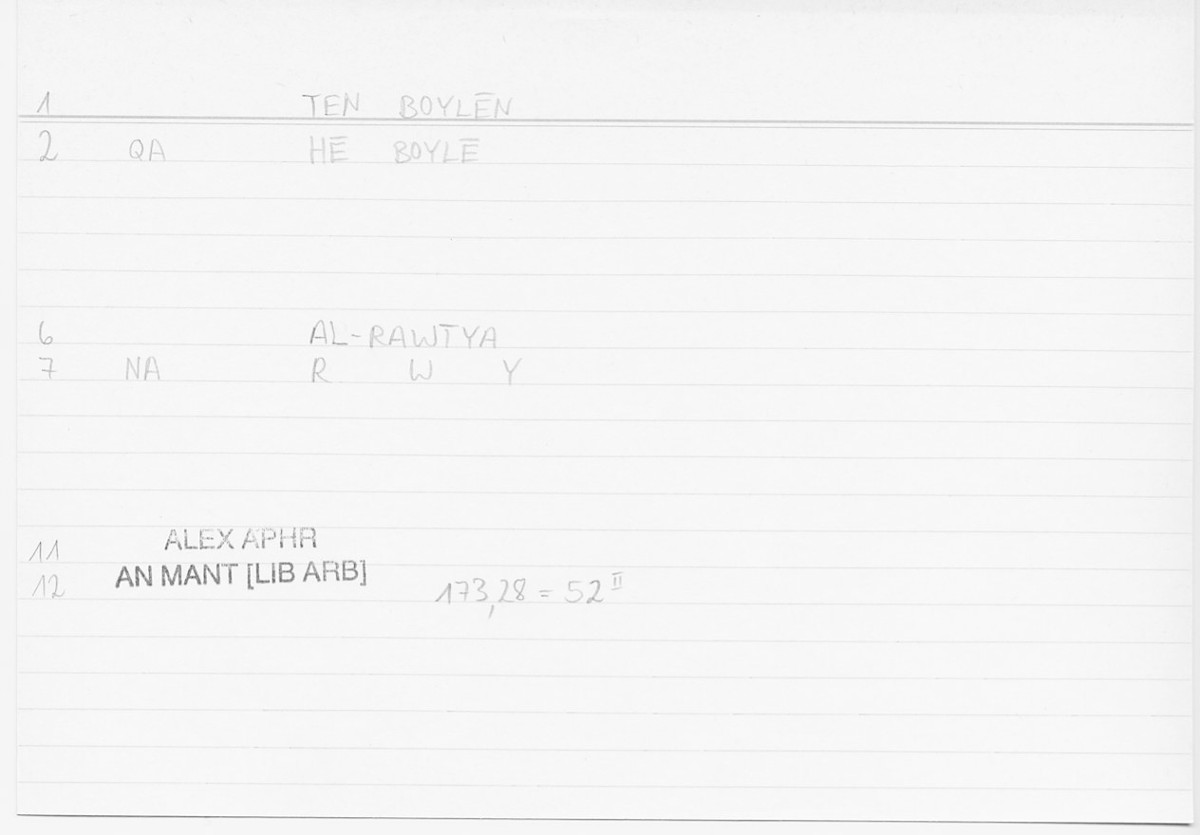 1 TEN BOYLĒN
2 QA HĒ BOYLĒ
6 AL-RAWĪYA
7 NA R W Y
11 ALEX APHR
12 AN MANT [LIB ARB] 173,28 = 52 II